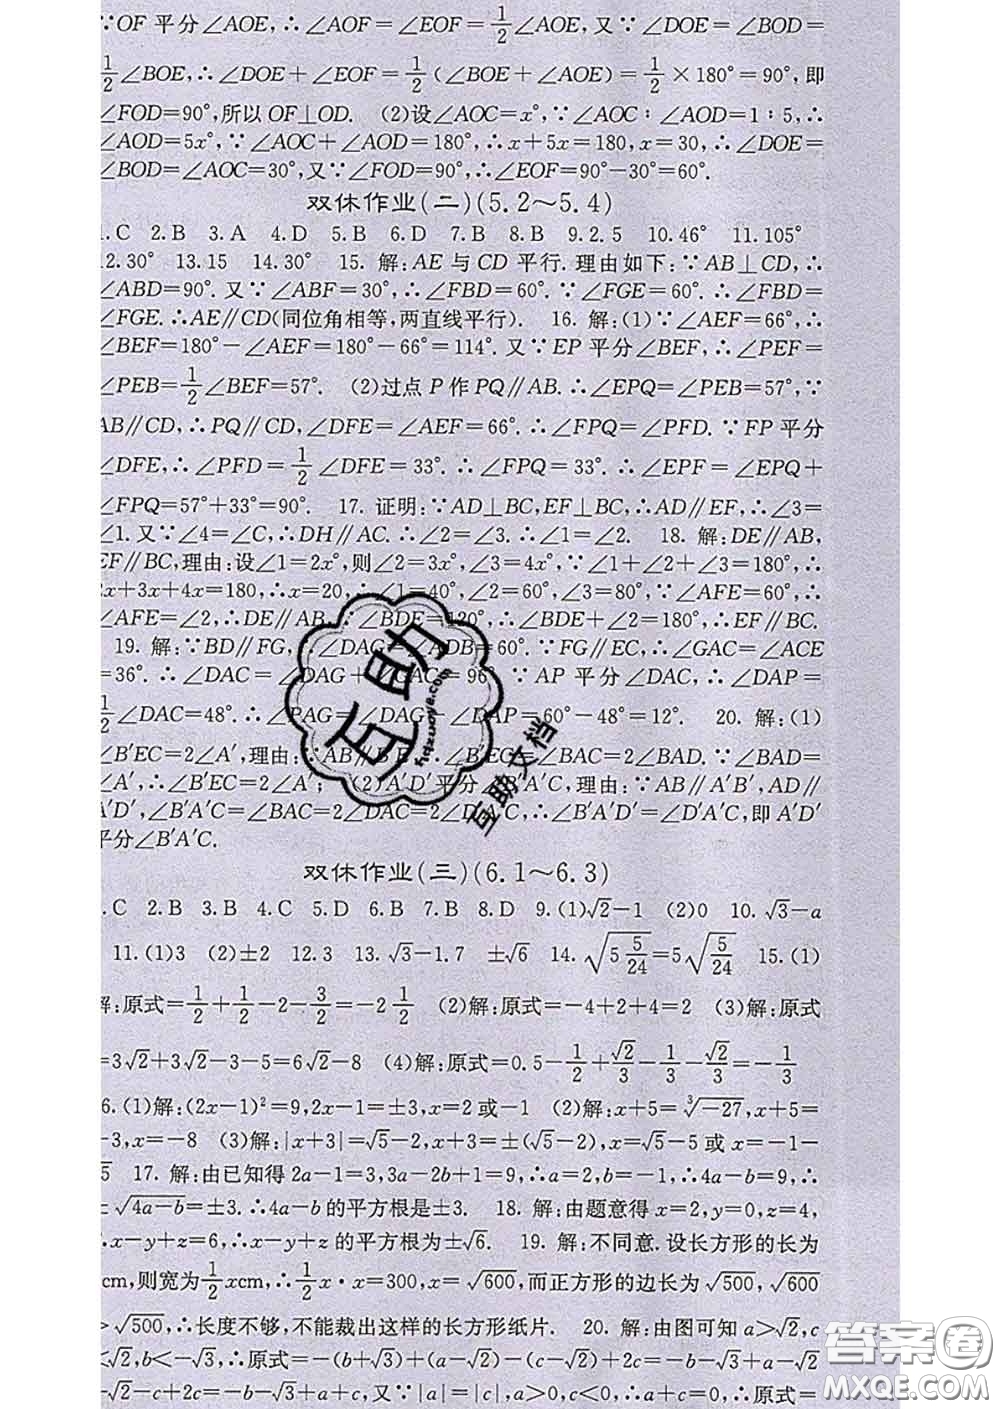 ∵OF 平分∠AOE,∴∠AOF=∠EOF=1/2∠AOE,又∵∠DOE=∠BOD=
1/2∠BOE,∴∠DOE+∠EOF=1/2(∠BOE+∠AOE)=1/2×180°=90°,即
∠FOD=90°,所以 OF⊥OD. (2)设∠AOC=x°,∵∠AOC∶∠AOD=1∶5,∴
∠AOD=5x°,∵∠AOC+∠AOD=180°,∴x+5x=180,x=30,∴∠DOE=
∠BOD=∠AOC=30°,又∵∠FOD=90°,∴∠EOF=90°-30°=60°.
双休作业(二)(5.2～5.4)
1.C 2.B 3.A 4.D 5.B 6.D 7.B 8.B 9.2.5 10.46° 11.105°
12.30° 13.15 14.30° 15. 解:AE 与 CD 平行.理由如下:∵AB⊥CD,∴
∠ABD=90°.又∵∠ABF=30°,∴∠FBD=60°.∵∠FGE=60°.∴∠FBD=
∠FGE.∴AE∥CD(同位角相等,两直线平行). 16. 解:(1)∵∠AEF=66°,∴
∠BEF=180°-∠AEF=180°-66°=114°.又∵EP 平分∠BEF,∴∠PEF=
∠PEB=1/2∠BEF=57°. (2)过点 P 作 PQ∥AB.∴∠EPQ=∠PEB=57°,∵
AB∥CD,∴PQ∥CD,∠DFE=∠AEF=66°.∴∠FPQ=∠PFD.∵FP 平分
∠DFE,∴∠PFD=1/2∠DFE=33°.∴∠FPQ=33°.∴∠EPF=∠EPQ+
∠FPQ=57°+33°=90°. 17. 证明:∵AD⊥BC,EF⊥BC,∴AD∥EF,∴∠3=
∠1.又∵∠4=∠C,∴DH∥AC.∴∠2=∠3.∴∠1=∠2. 18. 解:DE∥AB,
EF∥BC,理由:设∠1=2x°,则∠2=3x°,∠3=4x°,∵∠1+∠2+∠3=180°,∴
2x+3x+4x=180,∴x=20,∴∠1=40°,∠2=60°,∠3=80°,∵∠AFE=60°,∴
∠AFE=∠2,∴DE∥AB,∴∠BDE=120°,∴∠BDE+∠2=180°,∴EF∥BC.
19. 解:∵BD∥FG,∴∠DAG=∠ADB=60°.∵FG∥EC,∴∠GAC=∠ACE
=36°.∴∠DAC=∠DAG+∠GAC=96°.∵AP 平分∠DAC,∴∠DAP=
1/2∠DAC=48°.∴∠PAG=∠DAG-∠DAP=60°-48°=12°. 20. 解:(1)
∠B′EC=2∠A′,理由:∵AB∥B′E,∴∠B′EC=∠BAC=2∠BAD.∵∠BAD=
∠A′,∴∠B′EC=2∠A′; (2)A′D′平分∠B′A′C,理由:∵AB∥A′B′,AD∥
A′D′,∠B′A′C=∠BAC=2∠DAC=2∠D′A′C,∴∠B′A′D′=∠D′A′C,即 A′D′
平分∠B′A′C.
双休作业(三)(6.1～6.3)
.C 2.B 3.B 4.C 5.D 6.B 7.B 8.D 9.(1)√2-1 (2)0 10.√3-a
11.(1)3 (2)±2 12.3 13.√3-1.7 ±√6 14.√(5 5/24)=5√(5/24) 15.(1)
解:原式=1/2+1/2-2-3/2=-2 1/2 (2)解:原式=-4+2+4=2 (3)解:原式
=3√2+3√2-3-5=6√2-8 (4)解:原式=0.5-1/2+√2/3-1/3-√2/3=-1/3
6.(1)解:(2x-1)²=9,2x-1=±3,x=2 或-1 (2)解:x+5=∛-27,x+5=
-3,x=-8 (3)解:|x+3|=√5-2,x+3=±(√5-2),x=√5-5 或 x=-1-
√5 17. 解:由已知得 2a-1=3,3a-2b+1=9,∴a=2,b=-1,∴4a-b=9,∴
±√(4a-b)=±3.∴4a-b 的平方根是±3. 18. 解:由题意得 x=2,y=0,z=4,
∴x-y+z=6,∴x-y+z 的平方根为±√6. 19. 解:不同意.设长方形的长为
cm,则宽为1/2xcm,∴1/2x·x=300,x=√600,而正方形的边长为√500,√600
>√500,∴长度不够,不能裁出这样的长方形纸片. 20. 解:由图可知 a>√2,c
<√2,b<-√3,∴原式=-(b+√3)+(a-√2)-(c-√2)+2c=-b-√3+a-√2
-√2-c+2c=-b-√3+a+c,又∵|a|=|c|,a>0,c<0,∴a+c=0,∴原式=
互助
hdzuoye.com
互助文档
答案圈
MXQE.COM